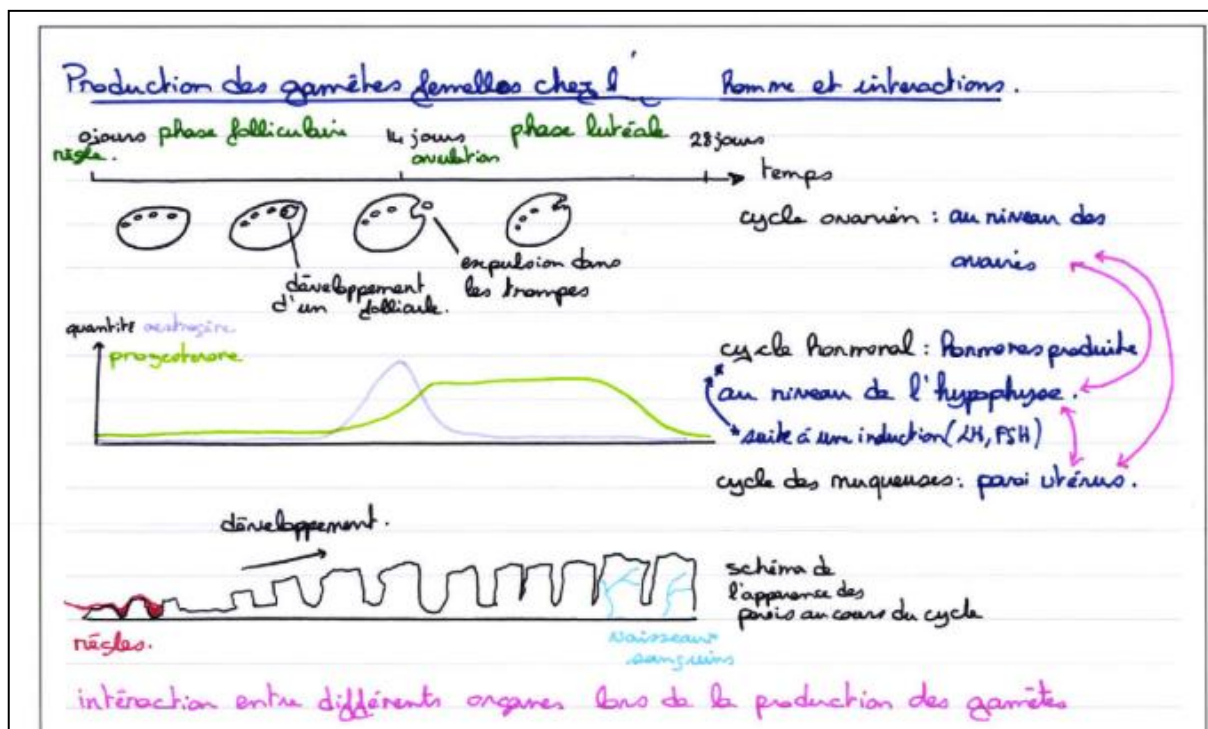 Production des gamètes femelles chez l' homme et interactions.
0 jours phase folliculaire 14 jours phase lutéale 28 jours
règle. ovulation
temps
cycle ovarien : au niveau des
ovaires
expulsion dans
les trompes
développement
d'un follicule.
quantité œstrogène
progesterone
cycle hormonal : hormones produite
au niveau de l'hypophyse.
*suite à une induction (LH, FSH)
cycle des muqueuses : paroi utérus.
développement.
schéma de
l'apparence des
parois au cours du cycle
règles.
Vaisseaux
sanguins
intéraction entre différents organes lors de la production des gamètes